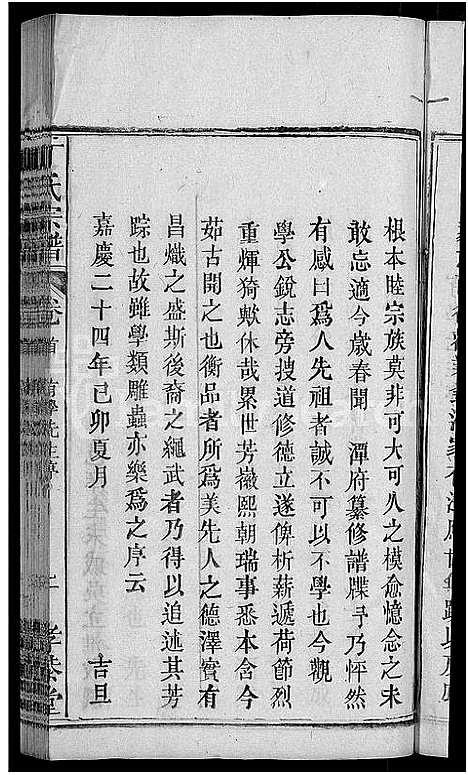 根本睦宗族莫非可大可久之模愈憶念之未
敢忘適今歲春聞 潭府纂修譜牒予乃怦然
有感曰爲人先祖者誠不可以不學也今觀
學公銳志旁搜道修德立遂俾析薪遞荷節烈
重輝猗歟休哉累世芳徽熙朝瑞事悉本舍今
茹古開之也衡品者所爲美先人之德澤實有
昌熾之盛斯後裔之繩武者乃得以追述其芳
踪也故雖學類雕蟲亦樂爲之序云
嘉慶二十四年己卯夏月 吉旦
氏宗譜 卷首